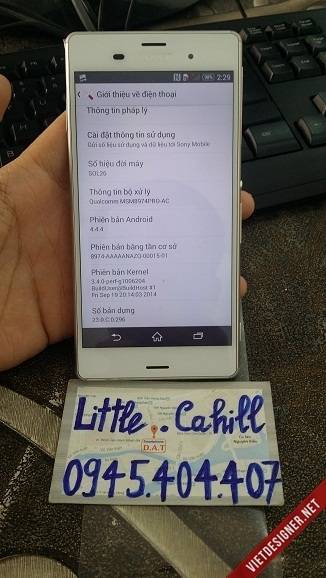 SONY
98% 2:29
Giới thiệu về điện thoại
Thông tin pháp lý
Cài đặt thông tin sử dụng
Gửi số liệu sử dụng và dữ liệu tới Sony Mobile
Số hiệu đời máy
SOL26
Thông tin bộ xử lý
Qualcomm MSM8974PRO-AC
Phiên bản Android
4.4.4
Phiên bản băng tần cơ sở
8974-AAAAANAZQ-00015-01
Phiên bản Kernel
3.4.0-perf-g1096204
BuildUser@BuildHost #1
Fri Sep 19 20:14:03 2014
Số bản dựng
23.0.C.0.296
Little..Cahill
D.A.T
0945.404.407
VIETDESIGNER.NET